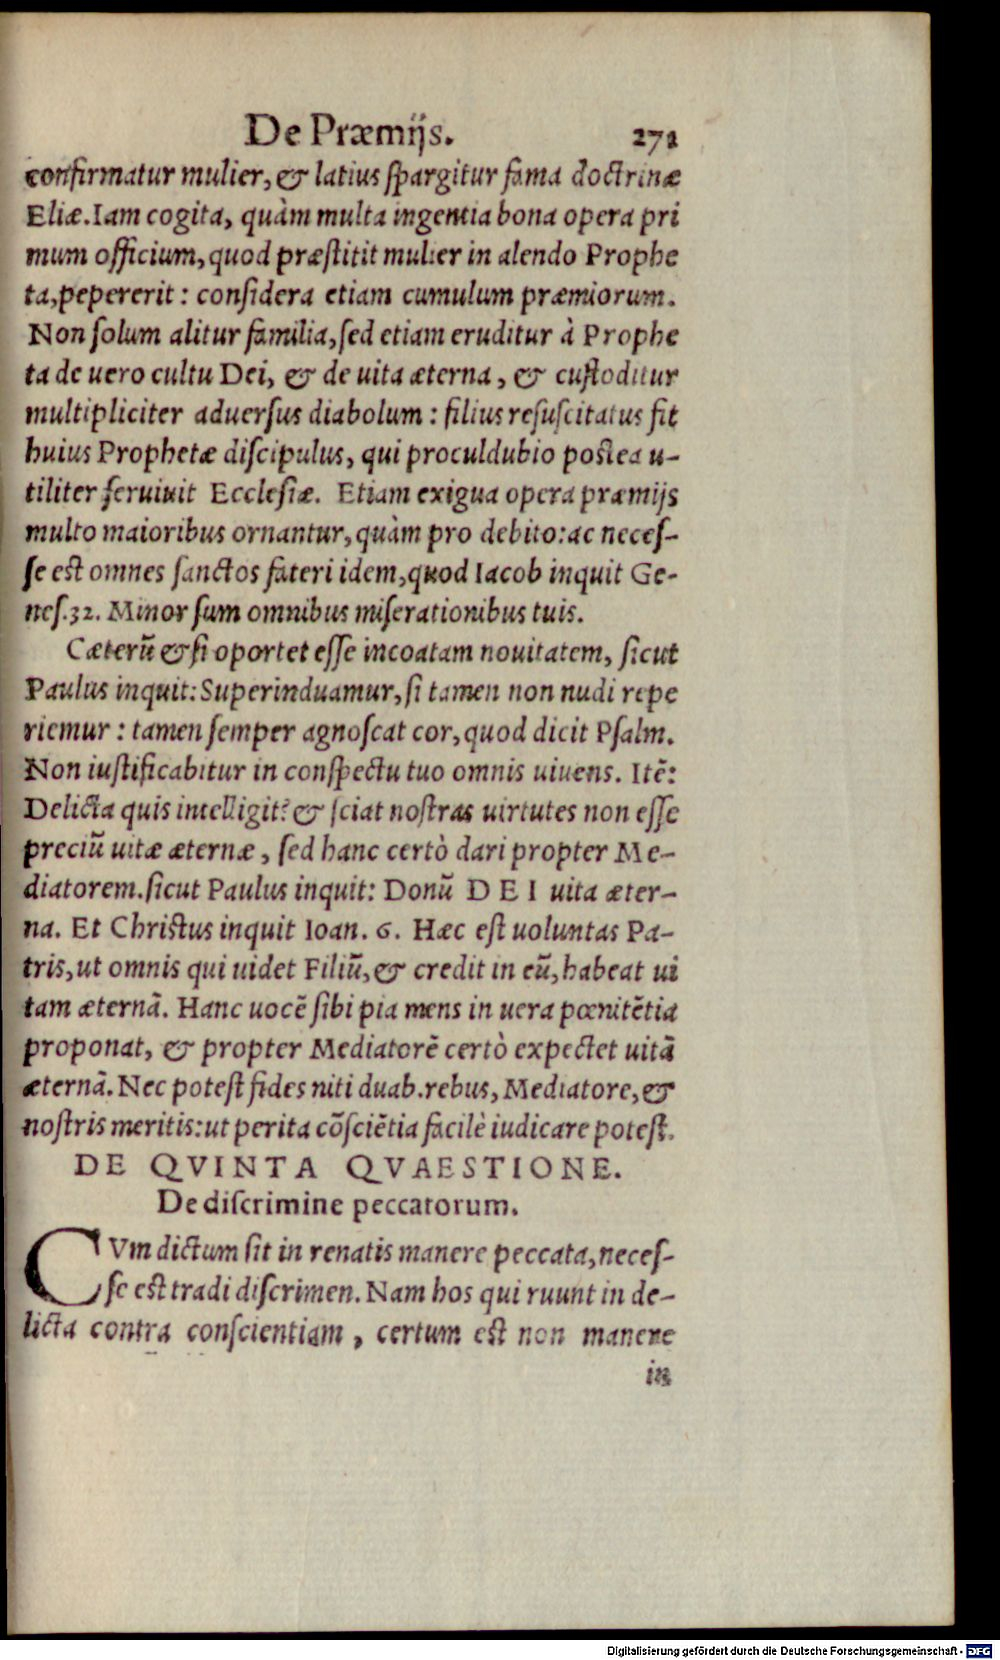 De Præmijs. 272
confirmatur mulier, & latius ſpargitur fama doctrinæ
Eliæ. Iam cogita, quàm multa ingentia bona opera pri
mum officium, quod præſtitit mulier in alendo Prophe
ta, pepererit: conſidera etiam cumulum præmiorum.
Non ſolum alitur familia, ſed etiam eruditur à Prophe
ta de uero cultu Dei, & de uita æterna, & cuſtoditur
multipliciter aduerſus diabolum: filius reſuſcitatus fit
huius Prophetæ diſcipulus, qui proculdubio poſtea u-
tiliter ſeruiuit Eccleſiæ. Etiam exigua opera præmijs
multo maioribus ornantur, quàm pro debito: ac neceſ-
ſe eſt omnes ſanctos fateri idem, quod Iacob inquit Ge-
neſ. 32. Minor ſum omnibus miſerationibus tuis.
Cæterũ & ſi oportet eſſe incoatam nouitatem, ſicut
Paulus inquit: Superinduamur, ſi tamen non nudi repe
riemur: tamen ſemper agnoſcat cor, quod dicit Pſalm.
Non iuſtificabitur in conſpectu tuo omnis uiuens. Itẽ:
Delicta quis intelligit? & ſciat noſtras uirtutes non eſſe
preciũ uitæ æternæ, ſed hanc certò dari propter Me-
diatorem. ſicut Paulus inquit: Donũ DEI uita æter-
na. Et Chriſtus inquit Ioan. 6. Hæc eſt uoluntas Pa-
tris, ut omnis qui uidet Filiũ, & credit in eũ, habeat ui
tam æternã. Hanc uocẽ ſibi pia mens in uera pœnitẽtia
proponat, & propter Mediatorẽ certò expectet uitã
æternã. Nec poteſt fides niti duab. rebus, Mediatore, &
noſtris meritis: ut perita cõſciẽtia facilè iudicare poteſt.
DE QVINTA QVAESTIONE.
De diſcrimine peccatorum.
CVm dictum ſit in renatis manere peccata, neceſ-
ſe eſt tradi diſcrimen. Nam hos qui ruunt in de-
licta contra conſcientiam, certum eſt non manere
in
Digitalisierung gefördert durch die Deutsche Forschungsgemeinschaft - DFG